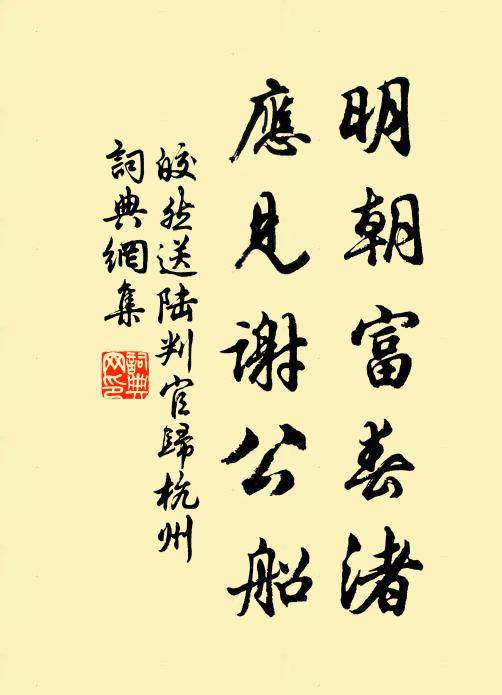 明朝富春渚
應見謝公船
皎然送陸判官歸杭州
詞典網集
詞典网印